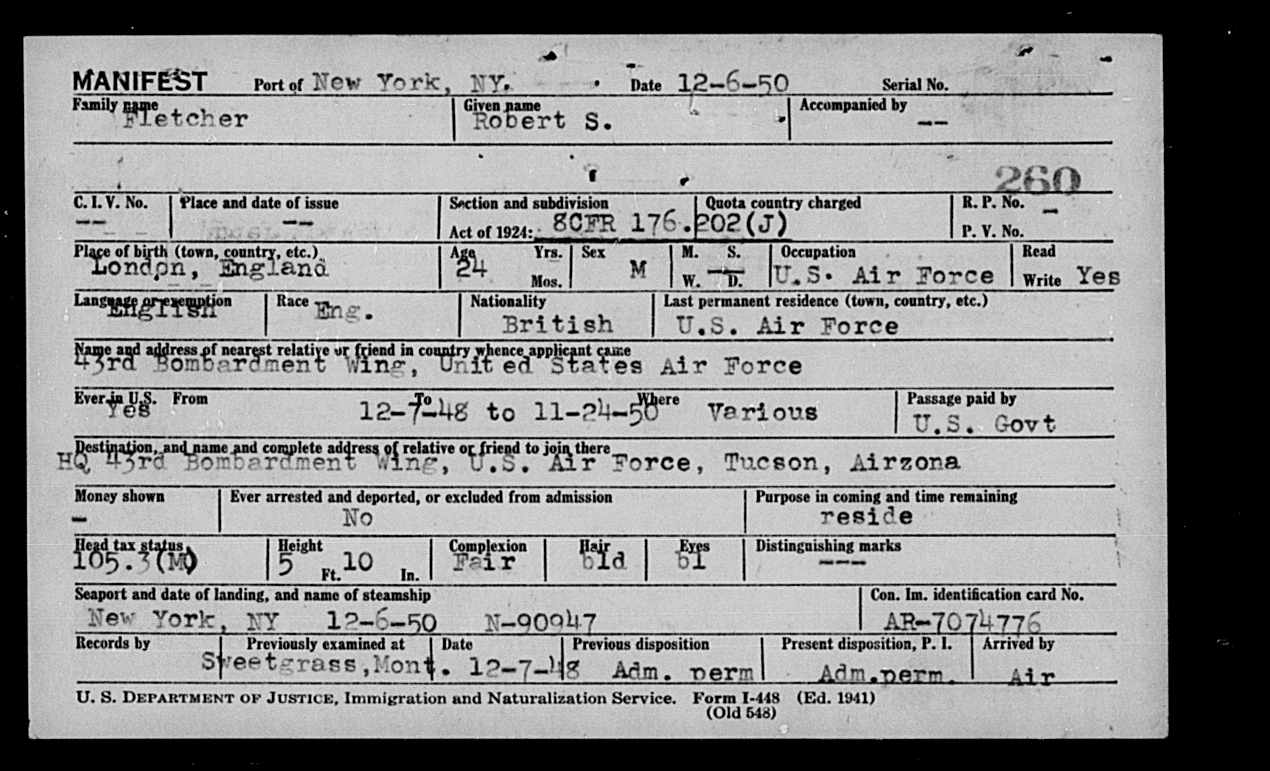 MANIFEST Port of New York, NY. Date 12-6-50 Serial No.
Family name Fletcher Given name Robert S. Accompanied by --
260
C. I. V. No. -- Place and date of issue -- Section and subdivision Act of 1924: 8CFR 176.202(J) Quota country charged R. P. No. - P. V. No.
Place of birth (town, country, etc.) London, England Age 24 Yrs. Mos. Sex M M. S. W. D. -- Occupation U.S. Air Force Read Write Yes
Language or exemption English Race Eng. Nationality British Last permanent residence (town, country, etc.) U.S. Air Force
Name and address of nearest relative or friend in country whence applicant came
43rd Bombardment Wing, United States Air Force
Ever in U.S. Yes From 12-7-48 To to 11-24-50 Where Various Passage paid by U.S. Govt
Destination, and name and complete address of relative or friend to join there
HQ 43rd Bombardment Wing, U.S. Air Force, Tucson, Airzona
Money shown - Ever arrested and deported, or excluded from admission No Purpose in coming and time remaining reside
Head tax status 105.3(M) Height 5 Ft. 10 In. Complexion Fair Hair bld Eyes bl Distinguishing marks ---
Seaport and date of landing, and name of steamship New York, NY 12-6-50 N-90947 Con. Im. identification card No. AR-7074776
Records by Previously examined at Sweetgrass,Mont. Date 12-7-48 Previous disposition Adm. perm Present disposition, P. I. Adm.perm. Arrived by Air
U. S. DEPARTMENT OF JUSTICE, Immigration and Naturalization Service. Form I-448 (Ed. 1941)
(Old 548)